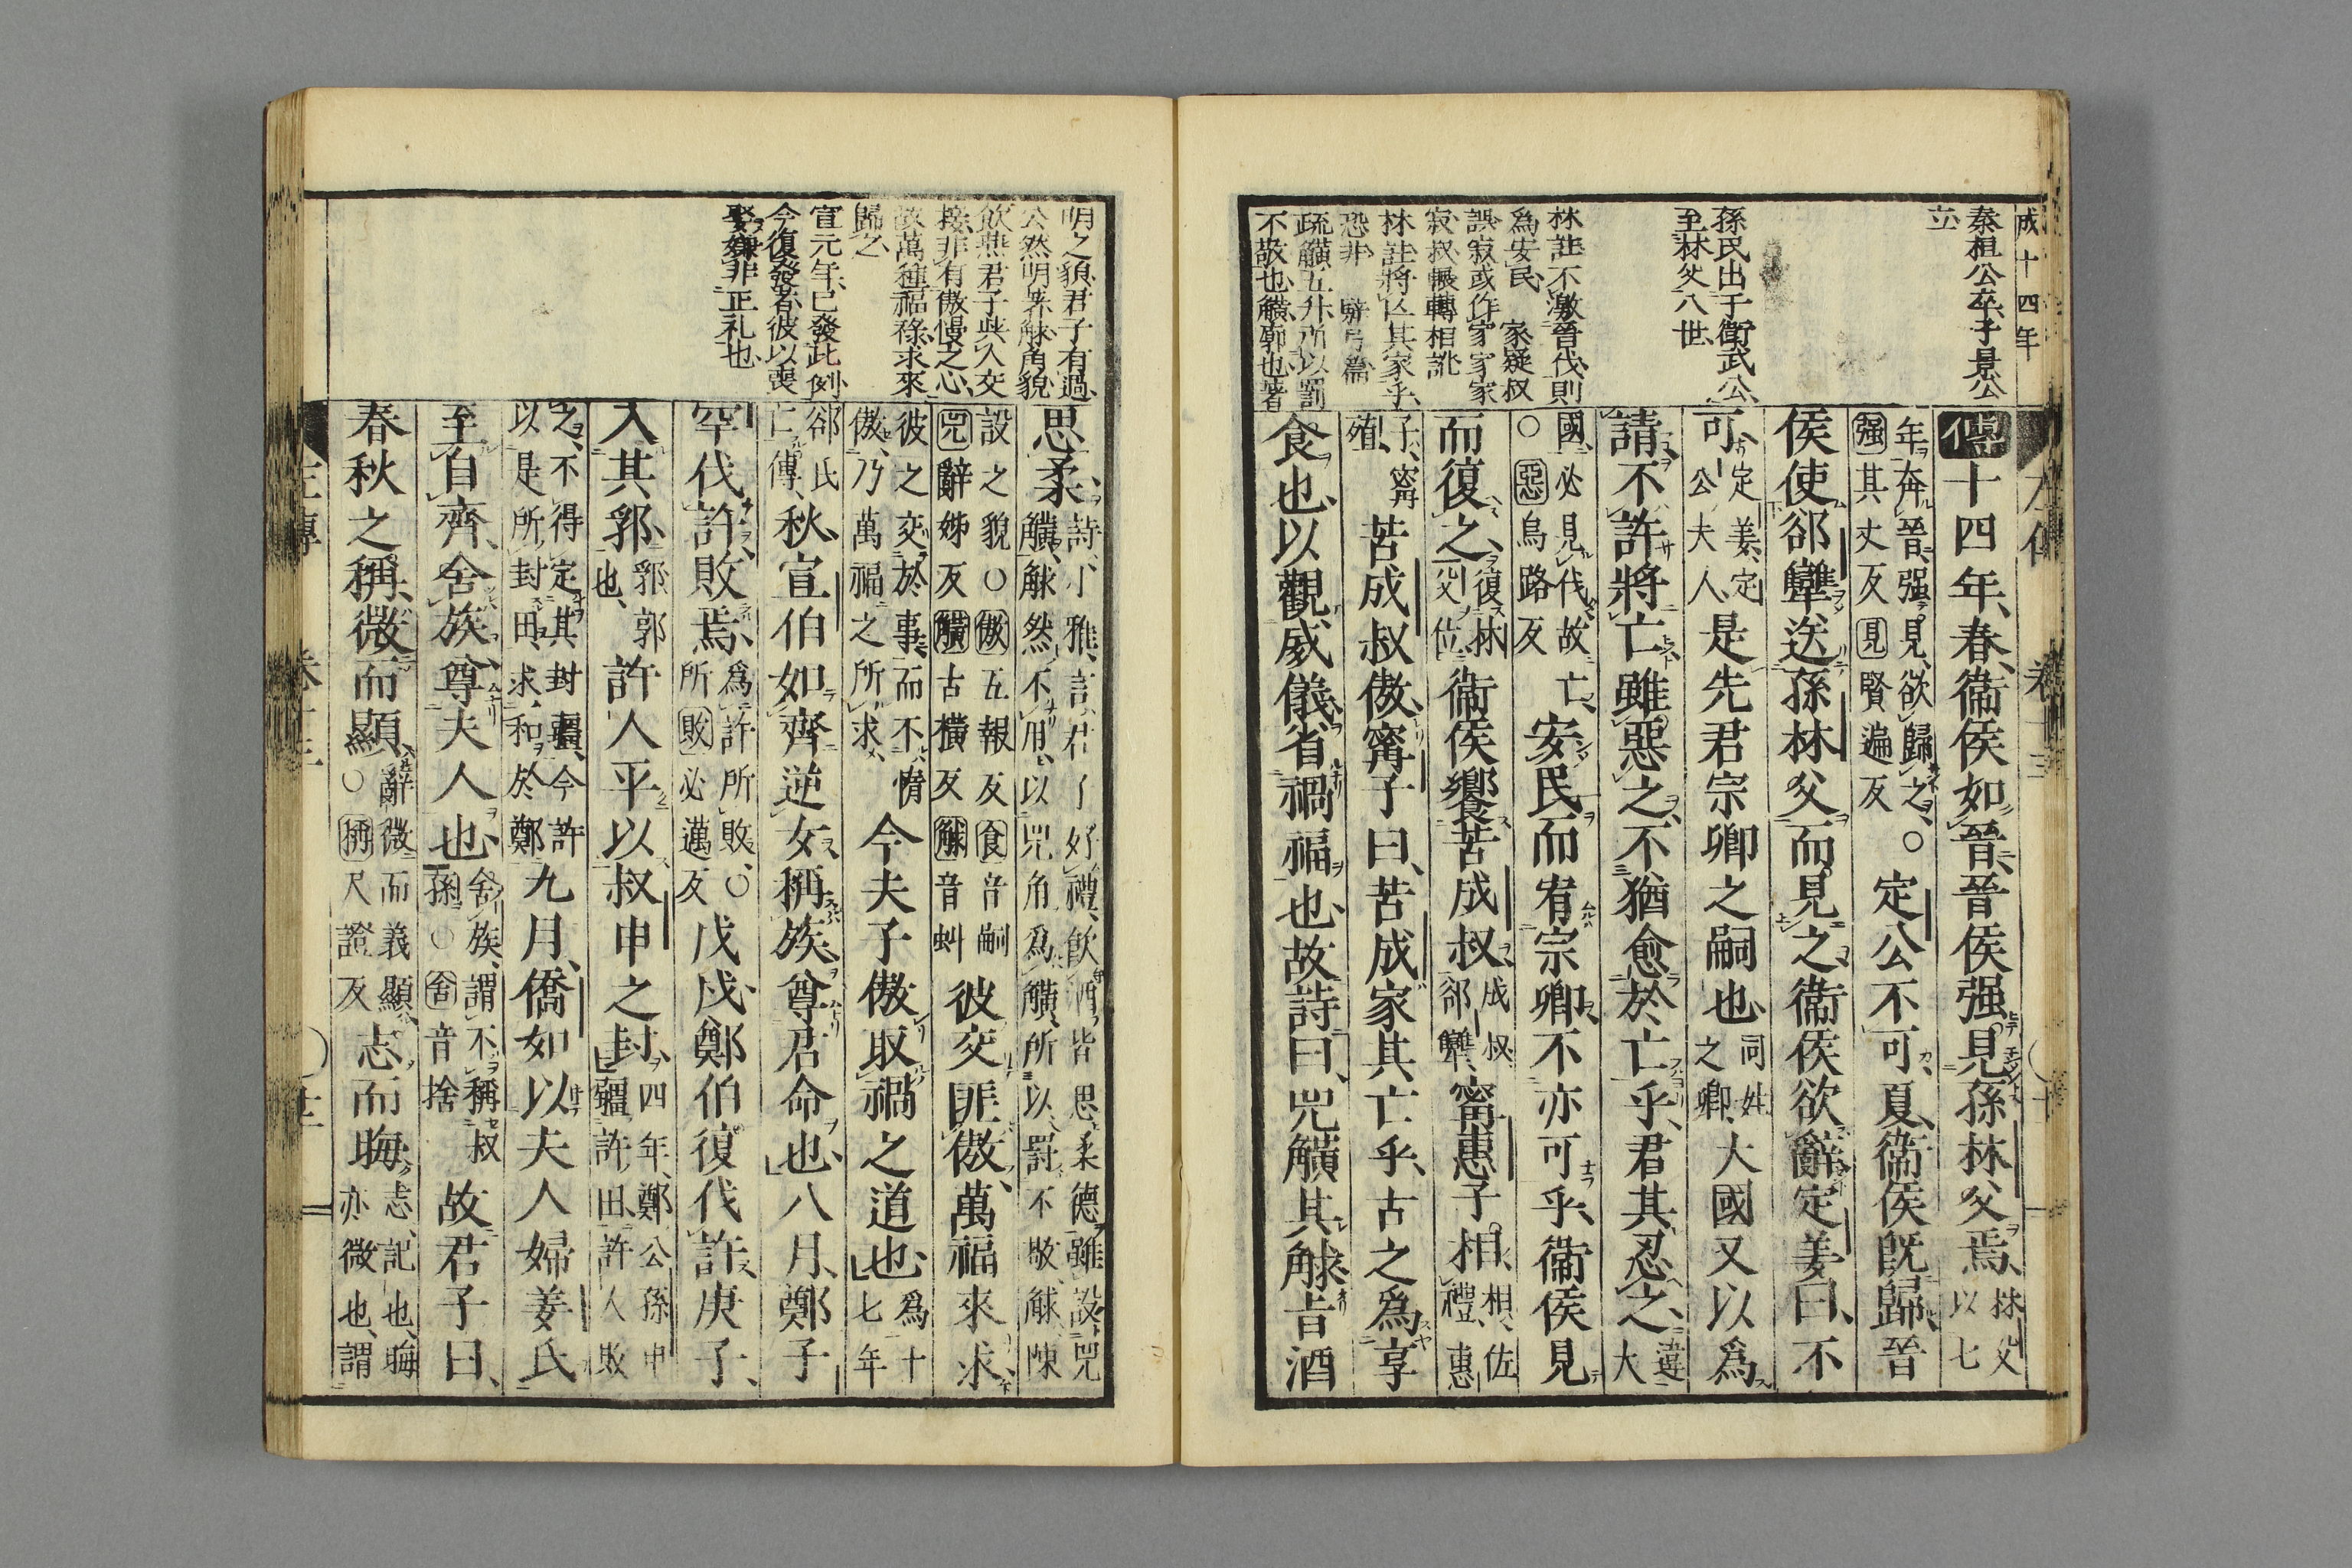 成十四年
秦桓公卒子景公
立
孫氏出于衛武公
至林父八世
林註不激晉伐則
為安民 家疑叔
誤寂或作家家家
寂叔輾轉相訛
林註將亾其家乎
恐非 辟弓篇
疏觵五升所以罰
不敬也觵廓也著
傳十四年春衞侯如晉晉侯强見孫林父焉林父以七
年奔晉强見欲歸之○强其丈反見賢遍反定公不可夏衞侯既歸晉
侯使郤犫送孫林父而見之衞侯欲辭定姜曰不
可定姜定公夫人是先君宗卿之嗣也同姓之卿大國又以為
請不許將亡雖惡之不猶愈於亡乎君其忍之違大
國必見伐故亡○惡烏路反安民而宥宗卿不亦可乎衞侯見
而復之復林父位衞侯饗苦成叔成叔郤犫甯惠子相相佐禮惠
子甯殖苦成叔傲甯子曰苦成家其亡乎古之為享
食也以觀威儀省禍福也故詩曰兕觵其觩旨酒
明之貌君子有過
公然明罪觩角貌
飲燕君子與人交
接非有傲慢之心
故萬種福祿求來
歸之
宣元年已發此例
今復發者彼以喪
娶嫌非正礼也
思柔詩小雅言君子好禮飲酒皆思柔德雖設兕觵觩然不用以兕角爲觵所以罰不敬觩陳
設之貌○傲五報反食音嗣兕辭姊反觵古橫反觩音虯彼交匪傲萬福來求
彼之交於事而不惰傲乃萬福之所求今夫子傲取禍之道也爲十七年
郤氏亡傳秋宣伯如齊逆女稱族尊君命也八月鄭子
罕伐許敗焉為許所敗○敗必邁反戊戌鄭伯復伐許庚子
入其郛郛郭也許人平以叔申之封四年鄭公孫申疆許田許人敗
之不得定其封疆今許以是所封田求和於鄭九月僑如以夫人婦姜氏
至自齊舍族尊夫人也舍族謂不稱叔孫○舍音捨故君子曰
春秋之稱微而顯辭微而義顯○稱尺證反志而晦志記也晦亦微也謂